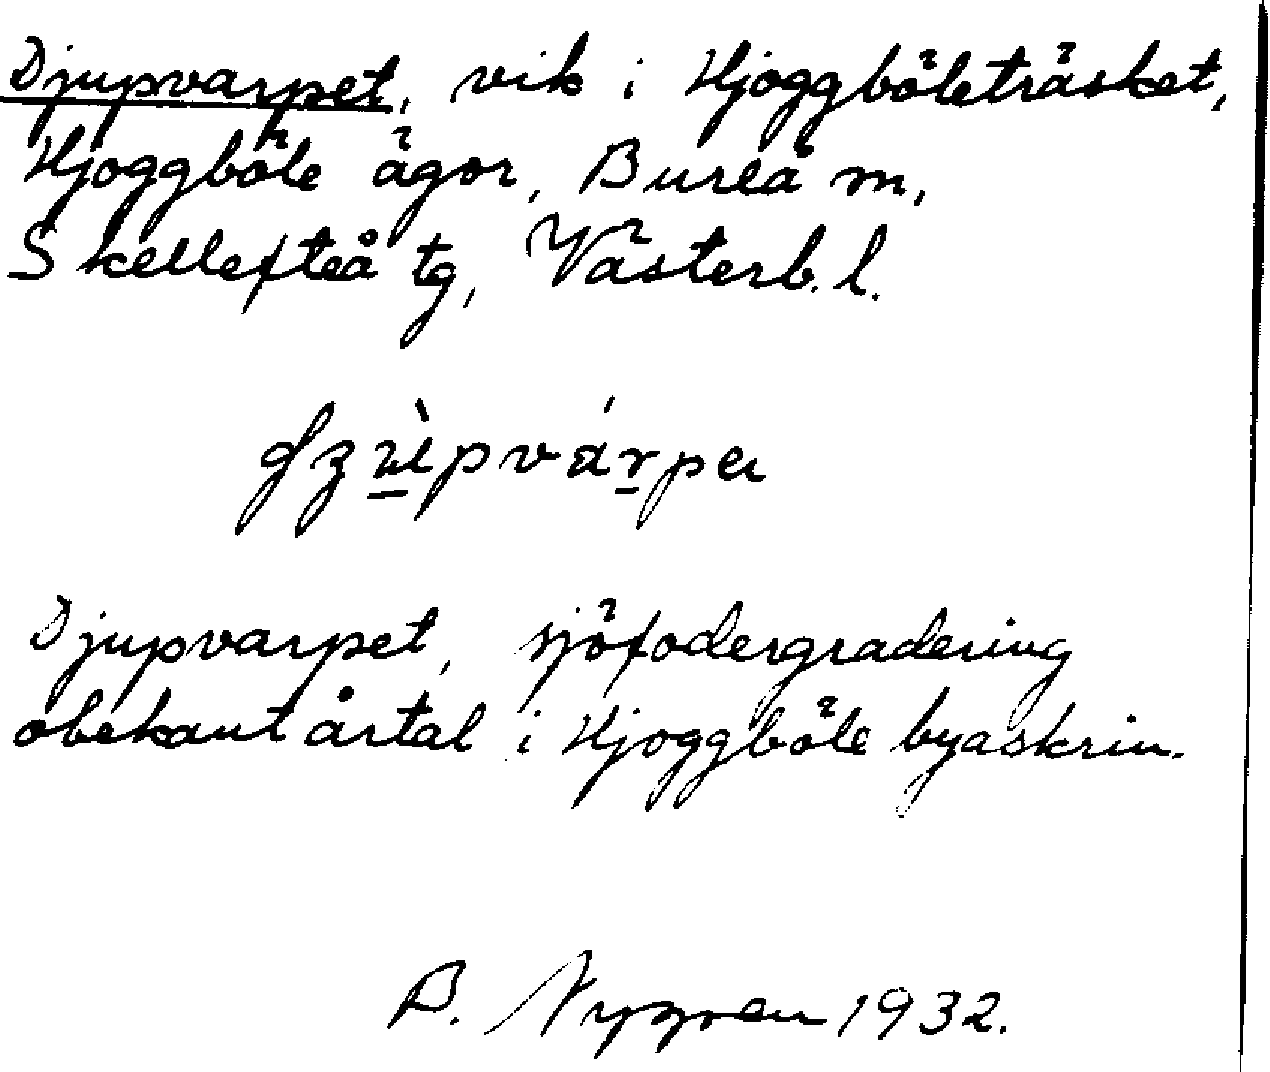 Djupvarpet, vik i Hjoggböleträsket,
Hjoggböle ägor, Bureå m,
Skellefteå tg, Västerb. l.
Djupvarpet, sjöfodergradering
obekant årtal i Hjoggböle byaskrin.
B. Nygren 1932.